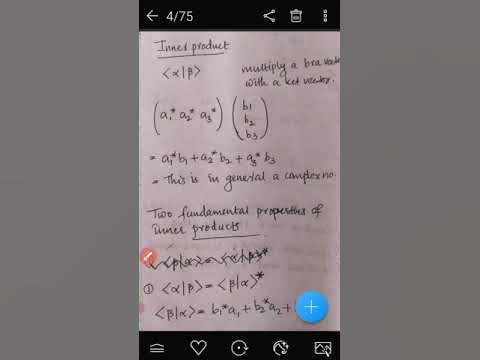 4/75
Inner product
⟨α|β⟩ multiply a bra vector
with a ket vector.
(a₁* a₂* a₃*) (b₁
b₂
b₃)
= a₁*b₁ + a₂*b₂ + a₃*b₃
= This is in general a complex no.
Two fundamental properties of
inner products
① ⟨α|β⟩ = ⟨β|α⟩*
⟨β|α⟩ = b₁*a₁ + b₂*a₂ +